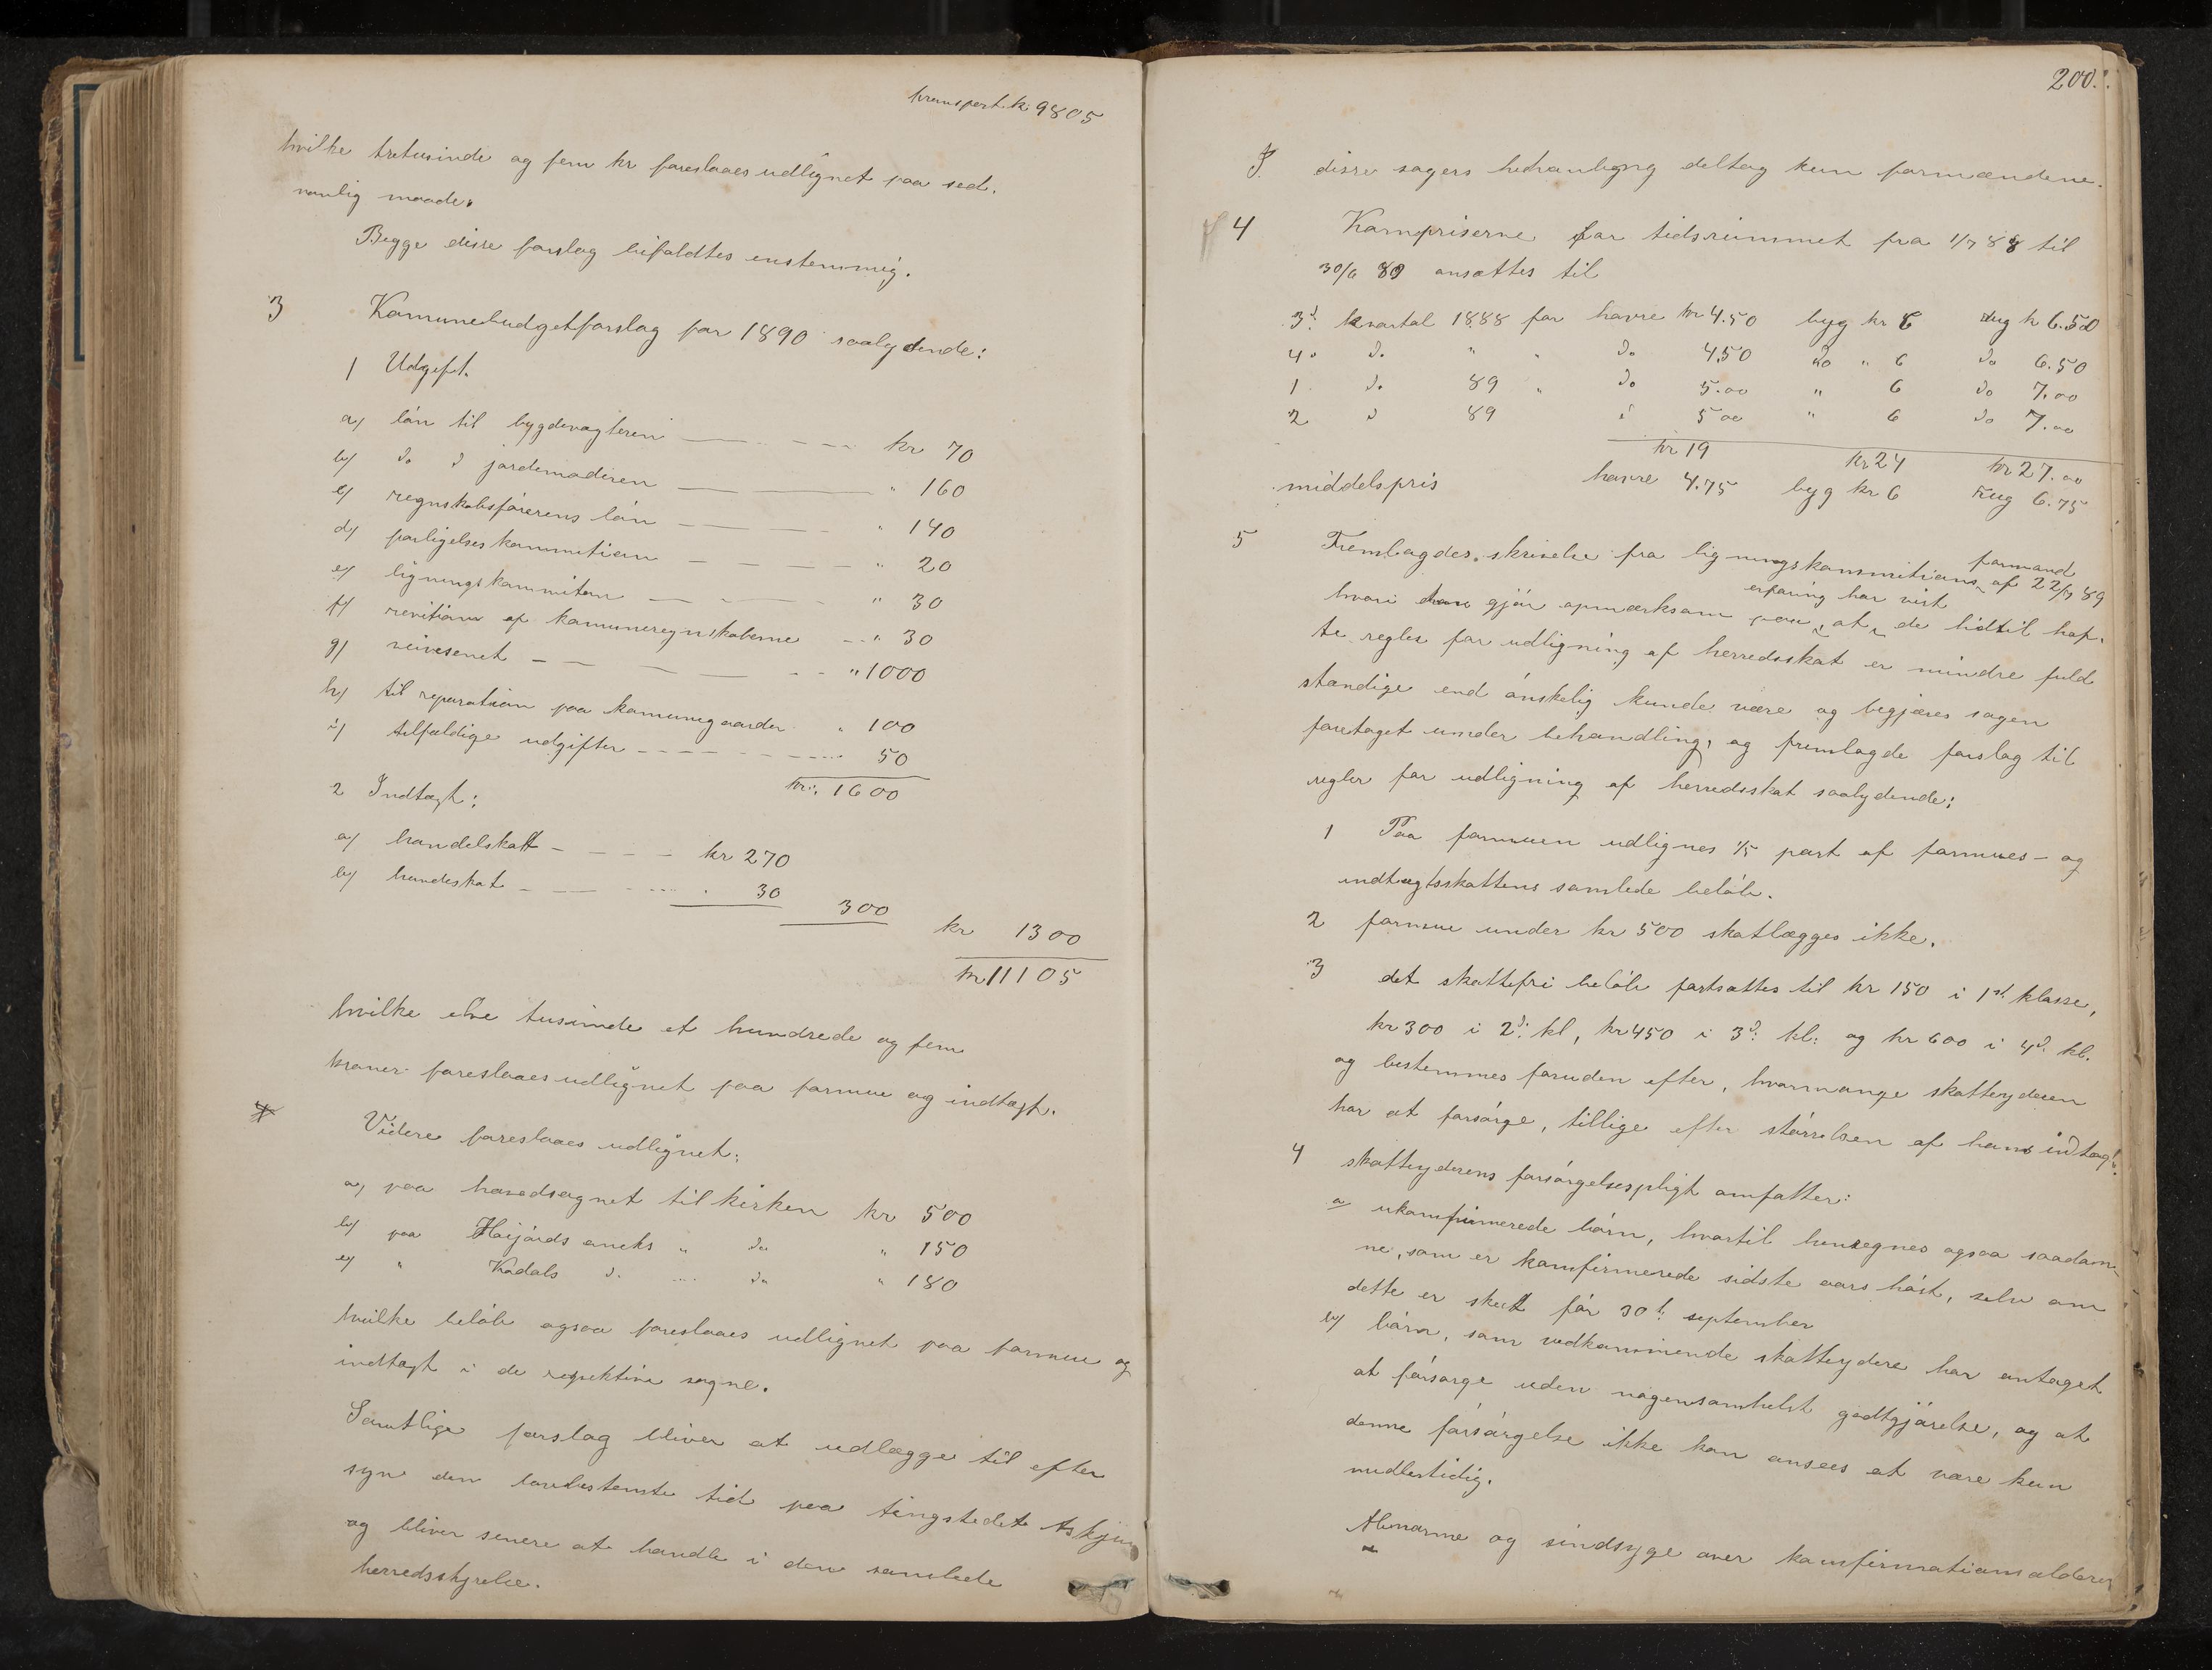 transport kr 9805
hvilke tretusinde og fem kr foreslaaes udlignet paa sed.
vanlig maade.
Begge disse forslag bifaldtes enstemmig.
3 Komunebudgetforslag for 1890 saalydende:
1 Udgift.
a) lön til bygdevægteren kr 70
b) do d jordemoderen " 160
c) regnskabsförerens lön " 140
d) forligelseskommition " 20
e) ligningskommiton " 30
f) revition af komuneregnskaberne " 30
g) veivesenet " 1000
h) til reparation paa komunegaarden " 100
i) tilfældige udgifter 50
kr. 1600
2 Indtægt:
a) handelskatt kr 270
b) hundeskat 30 300 kr 1300
kr 11105
hvilke elve tusinde et hundrede og fem
kroner foreslaaes udlignet paa formue og indtægt.
Videre foreslaaes udlignet:
a) paa hovedsognet til kirken kr 500
b) paa Höijords aneks " do " 150
c) " Kodals d. do " 180
hvilke belöb ogsaa foreslaaes udlignet paa formue og
indtægt i de respektive sogne.
Samtlige forslag bliver at udlægge til efter
syn den lovbestemte tid paa tingstedet Askjem
og bliver senere at handle i den samlede
herredsstyrelse.
200.
I disse sagers behanligng deltog kun formændene.
4 Kornpriserne for tidsrummet fra 1/7 88 til
30/6 89 ansættes til
3d kvartal 1888 for havre kr 4.50 byg kr 6 rug kr 6.50
4. d. " " do 4.50 do " 6 do 6.50
1. d. 89 " do 5.00 " 6 do 7.00
2 d 89 d 5 00 " 6 do 7.00
kr 19 kr 24 kr 27.00
middelspris havre 4.75 byg kr 6 rug 6.75
formand
5 Fremlagdes skrivelse fra ligningskommitions af 22/7 89
erfaring har vist
hvori han gjör opmærksom paa, at de hidtil haf.
te regler for udligning af herredsskat er mindre fuld
stændige end önskelig kunde være og begjæres sagen
foretaget under behandling, og fremlagde forslag til
regler for udligning af herredsskat saalydende:
1 Paa formuen udlignes 1/5 part af formues- og
indtægtsskattens samlede belöb.
2 formue under kr 500 skatlægges ikke.
3 det skattefri belöb fortsættes til kr 150 i 1st klasse,
kr 300 i 2d: kl, kr 450 i 3d: kl: og kr 600 i 4d. kl.
og bestemmes foruden efter, hvormange skatteyderen
har at forsörge, tillige efter störrelsen af hans indtægt.
4 skatteyderens forsörgelsespligt omfatter:
a ukonfirmerede börn, hvortil henregnes ogsaa saadan-
ne, som er konfirmerede sidste aars höst, selv om
dette er skeet för 30t. september
b) börn, som vedkommende skatteydere har antaget
at försorge uden nogensomhelst godtgjörelse, og at
denne försörgelse ikke kan ansees at være kun
midlertidig.
Abnorme og sindsyge over konfirmationsalderen